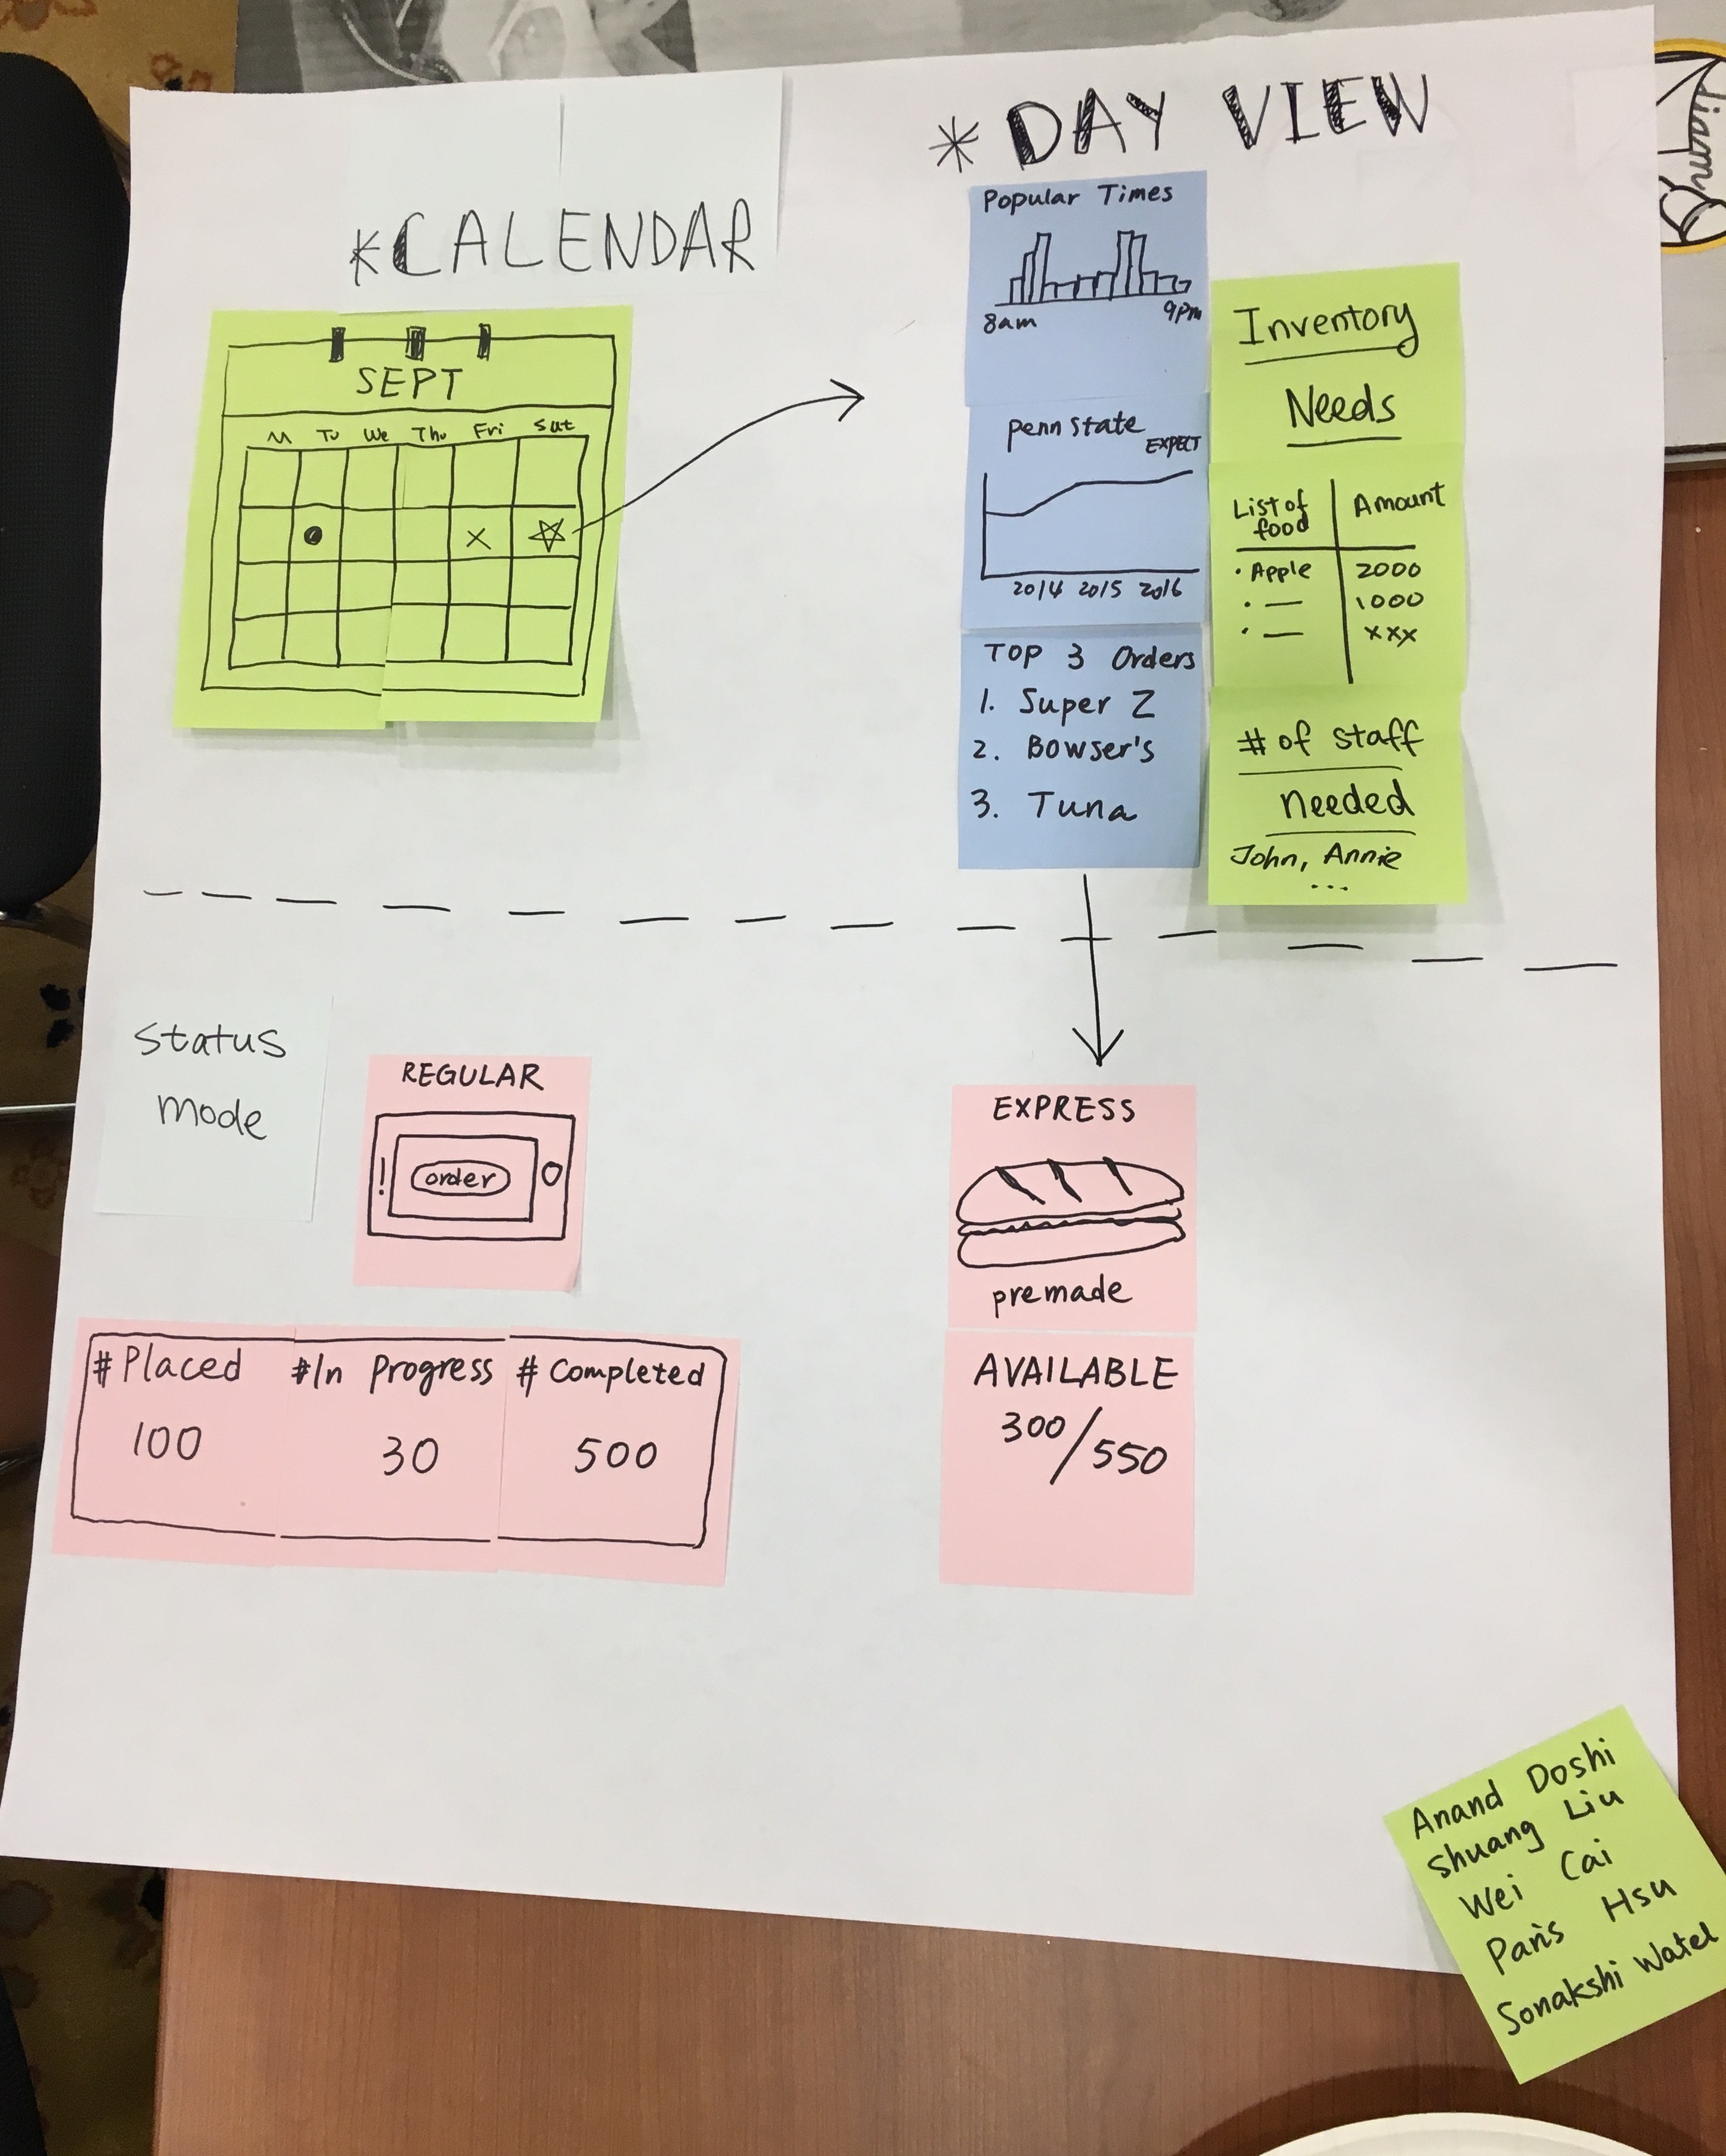 * DAY VIEW
* CALENDAR
SEPT
M Tu We Thu Fri Sat
Popular Times
8am 9pm
Penn State
EXPECT
2014 2015 2016
TOP 3 Orders
1. Super Z
2. Bowser's
3. Tuna
Inventory
Needs
List of food | Amount
• Apple 2000
• — 1000
• — xxx
# of staff
needed
John, Annie
...
Status
mode
REGULAR
order
# Placed
100
# In Progress
30
# Completed
500
EXPRESS
premade
AVAILABLE
300/550
Anand Doshi
Shuang Liu
Wei Cai
Paris Hsu
Sonakshi Watel